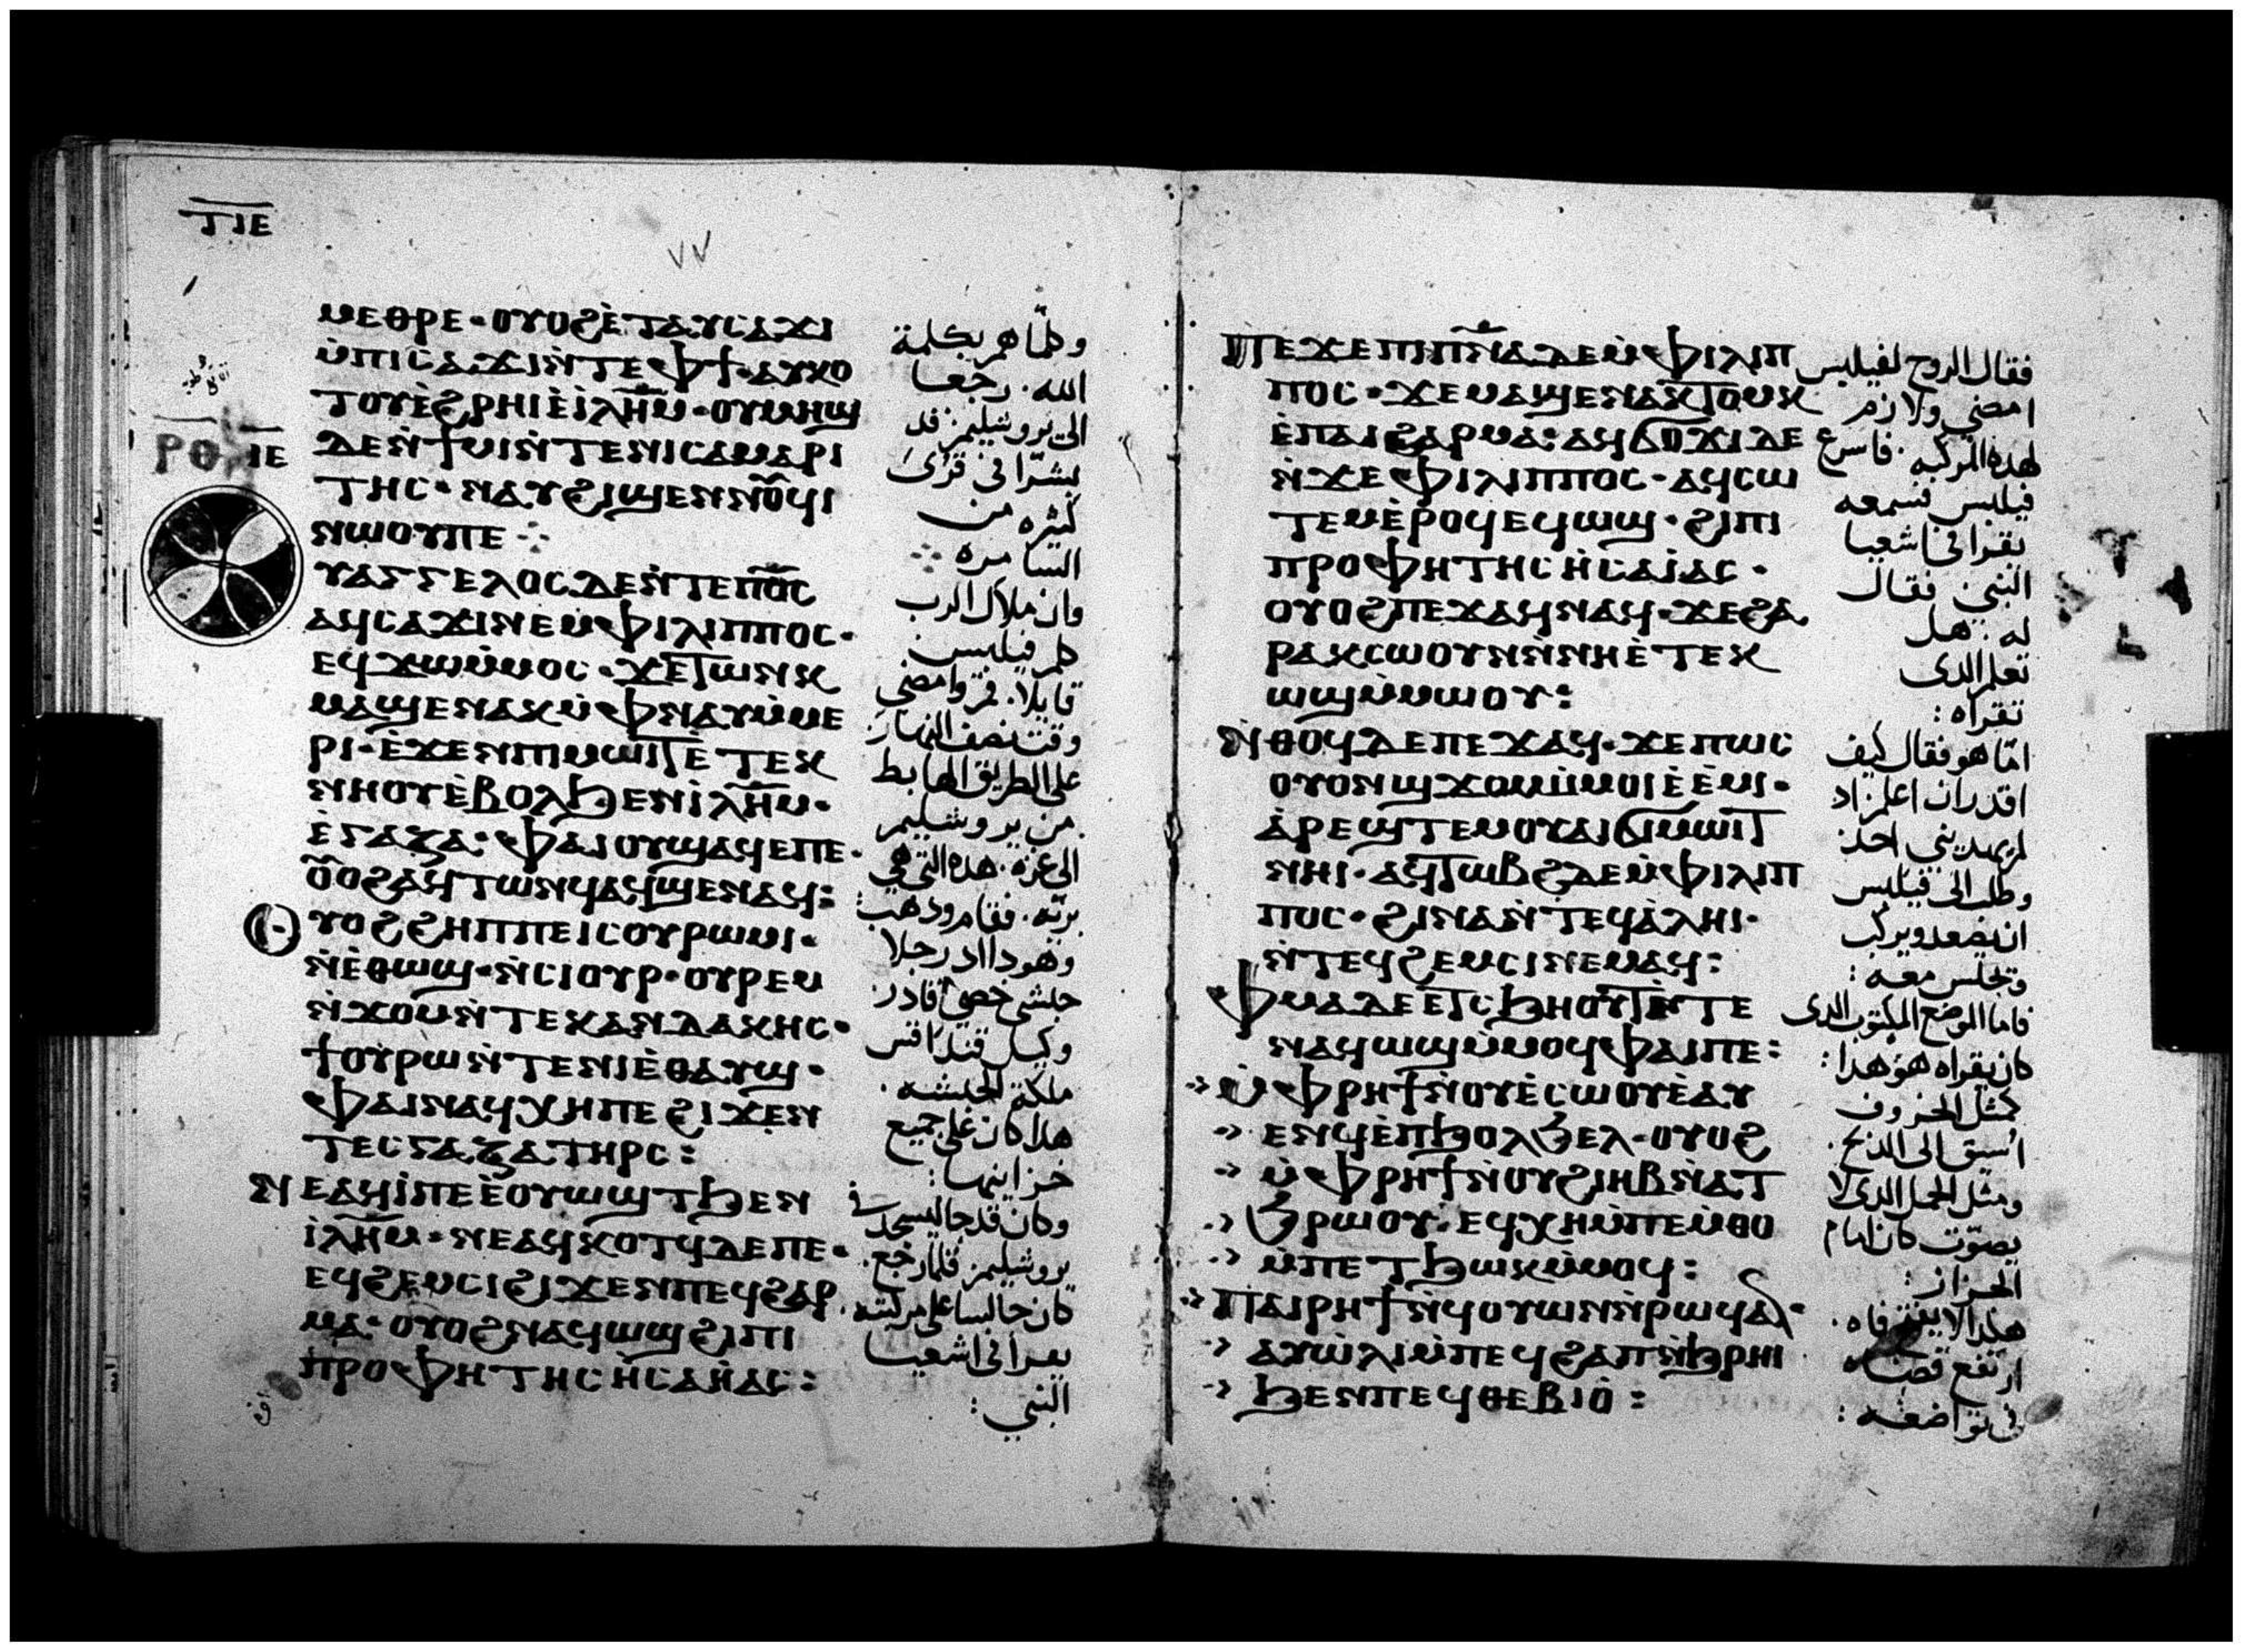 ⲧⲓⲉ
ⲙⲉⲑⲣⲉ· ⲟⲩⲟϩ ⲉ̀ⲧⲁⲩⲥⲁϫⲓ
ⲙ̀ⲡⲓⲥⲁϫⲓ ⲛ̀ⲧⲉ ⲫϯ· ⲁⲩⲕⲟ
ⲧⲟⲩ ⲉ̀ϩⲣⲏⲓ ⲉ̀ⲓ̀ⲗⲏ̅ⲙ· ⲟⲩⲙⲏϣ
ⲇⲉ ⲛ̀ϯⲙⲓ ⲛ̀ⲧⲉ ⲛⲓⲥⲁⲙⲁⲣⲓ
ⲧⲏⲥ· ⲛⲁⲩϩⲓϣⲉⲛⲛⲟ̅ϥⲓ
ⲛⲱⲟⲩ ⲡⲉ ⁘
ⲣⲑ ⲓⲉ
ⲩⲁⲅⲅⲉⲗⲟⲥ ⲇⲉ ⲛ̀ⲧⲉ ⲡⲟ̅ⲥ
ⲁϥⲥⲁϫⲓ ⲛⲉⲙ ⲫⲓⲗⲓⲡⲡⲟⲥ·
ⲉϥϫⲱ ⲙ̀ⲙⲟⲥ· ϫⲉ ⲧⲱⲛⲕ
ⲙⲁϣⲉⲛⲁⲕ ⲙ̀ⲫⲛⲁⲩ ⲙ̀ⲙⲉ
ⲣⲓ· ⲉ̀ϫⲉⲛ ⲡⲓⲙⲱⲓⲧ ⲉ̀ⲧⲉⲕ
ⲛⲏⲟⲩ ⲉ̀ⲃⲟⲗ ϧⲉⲛ ⲓ̀ⲗⲏ̅ⲙ·
ⲉ̀ⲅⲁⲍⲁ: ⲫⲁⲓ ⲟⲩϣⲁϥⲉ ⲡⲉ·
ⲟ̅ⲟϩ ⲁϥⲧⲱⲛϥ ⲁϥϣⲉⲛⲁϥ:
ⲟ ⲩⲟϩ ϩⲏⲡⲡⲉ ⲓⲥ ⲟⲩⲣⲱⲙⲓ·
ⲛ̀ⲉ̀ⲑⲱϣ· ⲛ̀ⲥⲓⲟⲩⲣ· ⲟⲩⲣⲉⲙ
ⲛ̀ϫⲟⲙ ⲛ̀ⲧⲉ ⲕⲁⲛⲇⲁⲕⲏⲥ·
ϯⲟⲩⲣⲱ ⲛ̀ⲧⲉ ⲛⲓⲉ̀ⲑⲁⲩϣ·
ⲫⲁⲓ ⲛⲁϥⲭⲏ ⲡⲉ ϩⲓϫⲉⲛ
ⲧⲉⲥⲅⲁⲍⲁ ⲧⲏⲣⲥ:
ⲛⲉⲁϥⲓ̀ ⲡⲉ ⲉ̀ⲟⲩⲱϣⲧ ϧⲉⲛ
ⲓ̀ⲗⲏ̅ⲙ· ⲛⲉⲁϥⲕⲟⲧϥ ⲇⲉ ⲡⲉ·
ⲉϥϩⲉⲙⲥⲓ ϩⲓϫⲉⲛ ⲡⲉϥϩⲁⲣ
ⲙⲁ· ⲟⲩⲟϩ ⲛⲁϥⲱϣ ϩⲓ ⲡⲓ
ⲡⲣⲟⲫⲏⲧⲏⲥ ⲏⲥⲁⲏ̀ⲁⲥ:
وكلماهم بكلمة
الله. رجعا
الى يروشليم. قد
بشرا فى قرى
كثيره من
السامره ⁘
وان ملاك الرب
كلم فيلبس
قايلا. قم وامضى
وقت نصف النهار
على الطريق الهابط
من يروشليم
الى غزه. هذه التى هى
بريه. فقام وذهب:
وهودا اد رجلا
حبشى خصى قادر
وكيل قنداقس
ملكة الحبشه.
هذا كان على جميع
خزاينها:
وكان قد جا ليسجد فى
يروشليم. فلما رجع.
كان جالسا على مركبته
يقرا فى اشعيا
النبى:
ⲡⲉϫⲉ ⲡⲓⲡⲛ̅ⲁ ⲇⲉ ⲙ̀ⲫⲓⲗⲓⲡ
ⲡⲟⲥ· ϫⲉ ⲙⲁϣⲉⲛⲁⲕ ⲧⲟⲙⲕ
ⲉ̀ⲡⲁⲓϩⲁⲣⲙⲁ: ⲁϥϭⲟϫⲓ ⲇⲉ
ⲛ̀ϫⲉ ⲫⲓⲗⲓⲡⲡⲟⲥ· ⲁϥⲥⲱ
ⲧⲉⲙ ⲉ̀ⲣⲟϥ ⲉϥⲱϣ· ϩⲓ ⲡⲓ
ⲡⲣⲟⲫⲏⲧⲏⲥ ⲏ̀ⲥⲁⲓ̀ⲁⲥ·
ⲟⲩⲟϩ ⲡⲉϫⲁϥ ⲛⲁϥ· ϫⲉ ϩⲁ
ⲣⲁ ⲕⲥⲱⲟⲩⲛ ⲛ̀ⲛⲏ ⲉ̀ⲧⲉⲕ
ⲱϣ ⲙ̀ⲙⲱⲟⲩ:
ⲛ̀ⲑⲟϥ ⲇⲉ ⲡⲉϫⲁϥ· ϫⲉ ⲡⲱⲥ
ⲟⲩⲟⲛ ϣϫⲟⲙ ⲙ̀ⲙⲟⲓ ⲉ̀ⲉ̀ⲙⲓ·
ⲁ̀ⲣⲉϣⲧⲉⲙ ⲟⲩⲁⲓ ϭⲓⲙⲱⲓⲧ
ⲛⲏⲓ· ⲁϥⲧⲱⲃϩ ⲇⲉ ⲙ̀ⲫⲓⲗⲓⲡ
ⲡⲟⲥ· ϩⲓⲛⲁ ⲛ̀ⲧⲉϥⲁ̀ⲗⲏⲓ·
ⲛ̀ⲧⲉϥϩⲉⲙⲥⲓ ⲛⲉⲙⲁϥ:
ⲫⲙⲁ ⲇⲉ ⲉⲧⲥϧⲏⲟⲩⲧ ⲉ̀ⲛⲧⲉ
ⲛⲁϥⲱϣ ⲙ̀ⲙⲟϥ ⲫⲁⲓ ⲡⲉ:
ⲙ̀ⲫⲣⲏϯ ⲛ̀ⲟⲩⲉ̀ⲥⲱⲟⲩ ⲉ̀ⲁⲩ
ⲉⲛϥ ⲉ̀ⲡϧⲟⲗϧⲉⲗ· ⲟⲩⲟϩ
ⲙ̀ⲫⲣⲏϯ ⲛ̀ⲟⲩϩⲓⲏⲃ ⲛ̀ⲁⲧ
ϧⲣⲱⲟⲩ· ⲉϥⲭⲏ ⲙ̀ⲡⲉⲙ̀ⲑⲟ
ⲙ̀ⲡⲉⲧϧⲱⲕ ⲙ̀ⲙⲟϥ:
ⲡⲁⲓⲣⲏϯ ⲛ̀ϥⲟⲩⲱⲛ ⲛ̀ⲣⲱϥ ⲁⲛ·
ⲁⲩⲱ̀ⲗⲓ ⲙ̀ⲡⲉϥϩⲁⲡ ⲛ̀ϧⲣⲏⲓ
ϧⲉⲛ ⲡⲉϥⲑⲉⲃⲓⲟ̀:
فقال الروح لفيلبس
امضى ولازم
لهذه المركبه. فاسرع
فيلبس فسمعه
يقرا فى اشعيا
النبى فقال
له. هل
تعلم الدى
تقراه:
اما هو فقال كيف
اقدر ان اعلم زاد
لم يهدينى احد
وطلب الى فيلبس
ان يصعد ويركب
وتجلس معه:
فاما الموضع المكتوب الدى
كان يقراه هو هدا:
كمثل الخروف
اسيق الى الذبح.
ومثل الحمل الدى لا
يصوت كان امام
الجزاز:
هكذا لا يفتح فاه.
ارتفع قضاه
فى تواضعه: